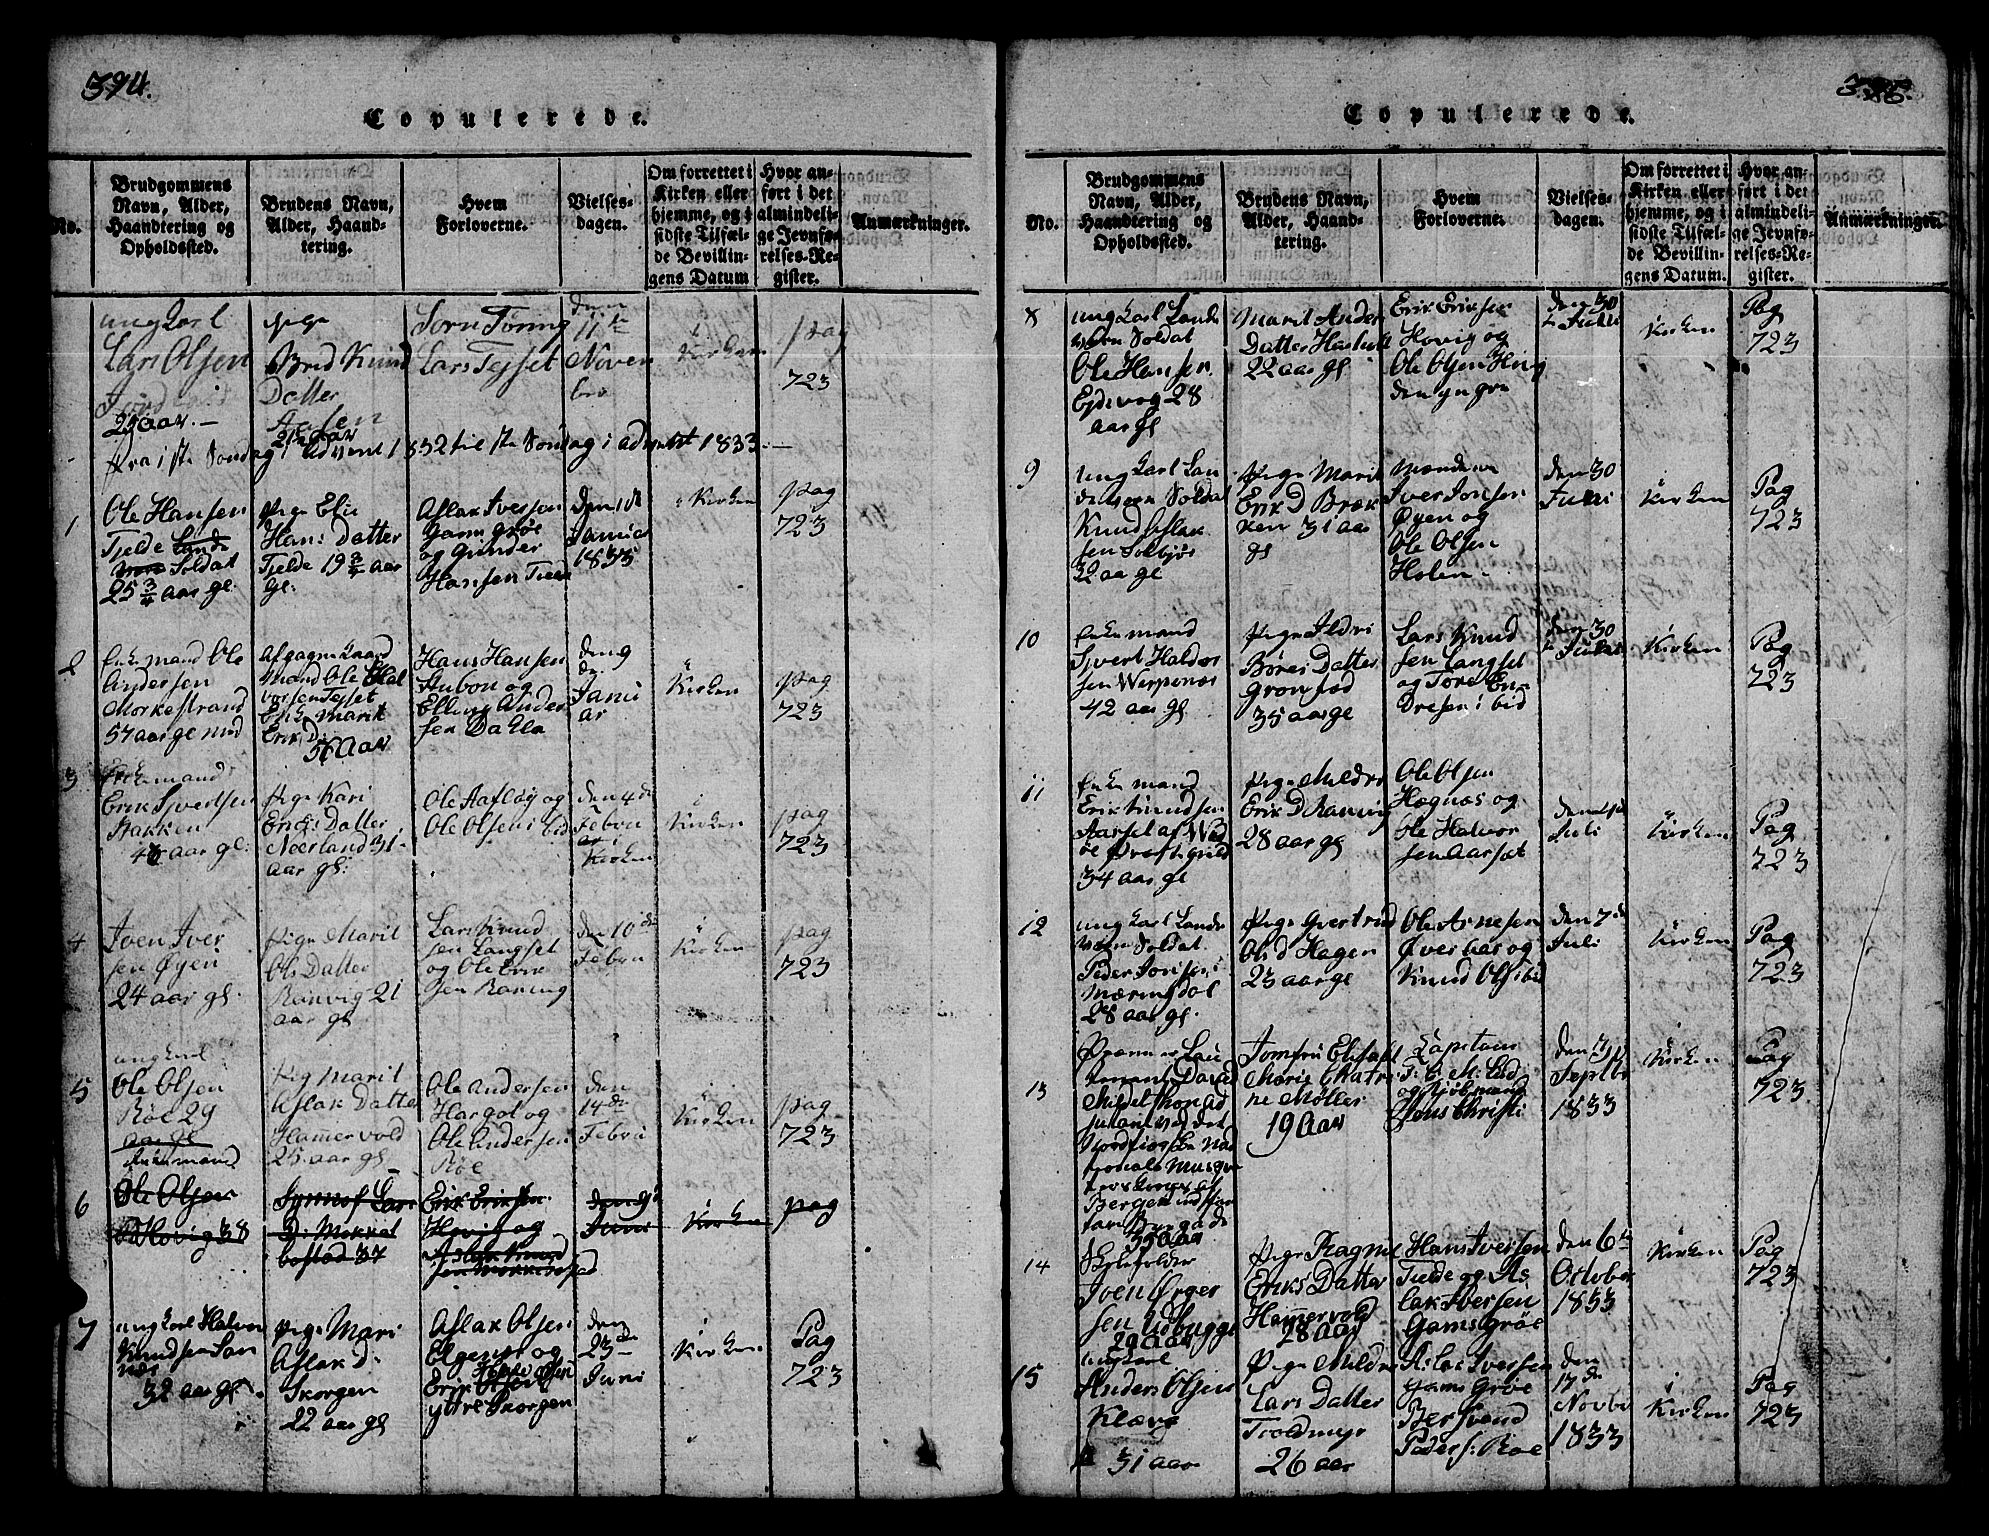 394.
Copulerede.
No.
Brudgommens
Navn, Alder,
Haandtering og
Opholdssted.
Brudens Navn,
Alder, Haand-
tering.
Hvem
Forloverne.
Vielses-
dagen.
Om forrettet i
Kirken eller
hjemme, og i
sidste Tilfæl-
de Bevillin-
gens Datum
Hvor an-
ført i det
almindeli-
ge Jevnfø-
relses-Re-
gister.
Anmærkninger.
ungkarl
Lars Olsen
25 Aar. —
pige
Bred Knud
Datter
21 Aar
Lars Tejset
den
11te
Novem
ber
i
Kirken
pag
723
fra 1ste Søndag i Advent 1832 til 1ste Søndag i advent 1833. —
1
Ole Hansen
Tjelde Lande
Soldat
25 3/4 aar gl.
pige Elie
Hans Datter
Tjelde 19 3/4 aar
gl.
Aslak Iversen
Gamsgrøe
og Gunder
Hansen
den 1de
Januar
1833
i Kirken
pag
723
2
Enkemand Ole
Andersen
Morkestrand
57 aar gl
Afgagne
Mand Ole Hal
vorsen Tejset
Enke Marit
Eriks D:
56 Aar
Hans Hansen
og
Elling Ander
sen Dahle
den 9
de
Janu
ar
i
Kirken
pag
723
3
Enkemand
Erik Sjvertsen
Bakken
aar gl:
pige Kari
Eriks Datter
Nerland 31
aar gl:
Ole Aafløy og
Ole Olsen ibid
den 4de
Febru
ar
Kirken
i
Kirken
pag
723
4
Iven Iver
sen Øyen
24 aar gl.
pige Marit
Ols Datter
Ranvig 21
aar gl
Lars Knud
sen Langset
og Ole Erik
sen Raning
den 10de
Febru
i
Kirken
pag
723
5
ungkarl
Ole Olsen
Røe 29
aar gl
Enkemand
pige Marit
Aslak Datter
Hammervold
25 aar gl
Ole Andersen
Hargot og
Ole Andersen
Røe
den
14de
Febru
i
Kirken
pag
723
6
Ole Olsen
Hovig 38
Synnøf Lars
D: Mekkel
bostad 37
Erik Eriksen
Hovig og
Aslak Knud
sen
den 9de
Juni
Kirken
pag
7
ungkarl Halvor
Knudsen San
næs
32 aar gl.
pige Mari
Aslak D:
Skorgen
22 aar gl
Aslak Olsen
og
Erik Olsen
yttre Skorgen
den
23de
Juni
i
Kirken
Pag
723
395.
Copulerede.
No.
Brudgommens
Navn, Alder,
Haandtering og
Opholdssted.
Brudens Navn,
Alder, Haand-
tering.
Hvem
Forloverne.
Vielses-
dagen.
Om forrettet i
Kirken eller
hjemme, og i
sidste Tilfæl-
de Bevillin-
gens Datum.
Hvor an-
ført i det
almindeli-
ge Jevnfø-
relses-Re-
gister.
Anmærkninger.
8
ungkarl Lande
værn Soldat
Ole Hansen
Ejdsvog 28
aar gl
Marit Anders
Datter
22 aar gl
Erik Eriksen
Hovig og
Ole Olsen
den 30
Juni
i
Kirken
Pag
723
9
ungkarl Lan
deværn Soldat
Knud Aslak
sen
32 aa gl
pige Marit
Erik D Bræk
ken 31 aar
gl
Mændene
Iver Jonsen
Øyen og
Ole Olsen
Holen
den 30
Juni
i
Kirken
Pag
723
10
Enkemand
Sjvert Haldor
sen Werpenæs
42 aar gl
pige Ildri
Børes Datter
35 aar gl
Lars Knud
sen Langset
og Tore En
Dresen ibid
den 30
Juni
i
Kirken
Pag
723
11
Enkemand
Erik Knudsen
Aarset af
øe Præstegield
34 aar gl
pige Mildri
Erik D Raning
28 aar gl
Ole Olsen
Hægnæs og
Ole Halvor
sen Aarsæt
den
Juli
i
Kirken
Pag
723
12
ungkarl Lande
værn Soldat
Peder Jonsen
Mæringdal
28 aar gl.
Pige Gjertrud
Ols d Hagen
23 aar gl
Ole Arnesen
Øveraas og
Knud Ols ibid
den 7de
Juli
i
Kirken
Pag
723
13
Premier Lieu
tenant David
Middelthon ved
det
Nordfiordske Na
tionale Musque
teerkorps af
Bergen
Brigade
35 Aar
Jomfru Elisabet
Marie Katri
ne Møller
19 Aar
Kapitain
og Kjøbmand
Hans Christi
den
Septbr
1833
i
Kirken
Pag
723.
14
Iven Ørger
sen Udbygge
29 Aar
Pige Ragnil
Eriks Datter
Hammervold
28 Aar
Hans Iversen
Tjelde og As
lak Iversen
Gamsgrøe
den 6te
October
1833
i
Kirken
Pag
723
15
ungkarl
Anders Olsen
Kleve
31 aar
Pige Mildri
Lars Datter
Troldmyr
26 aar
Aslak Iversen
Gamsgrøe
Bersvend
Peders: Roe
den
17de
Novbr
1833
i
Kirken
Pag
723